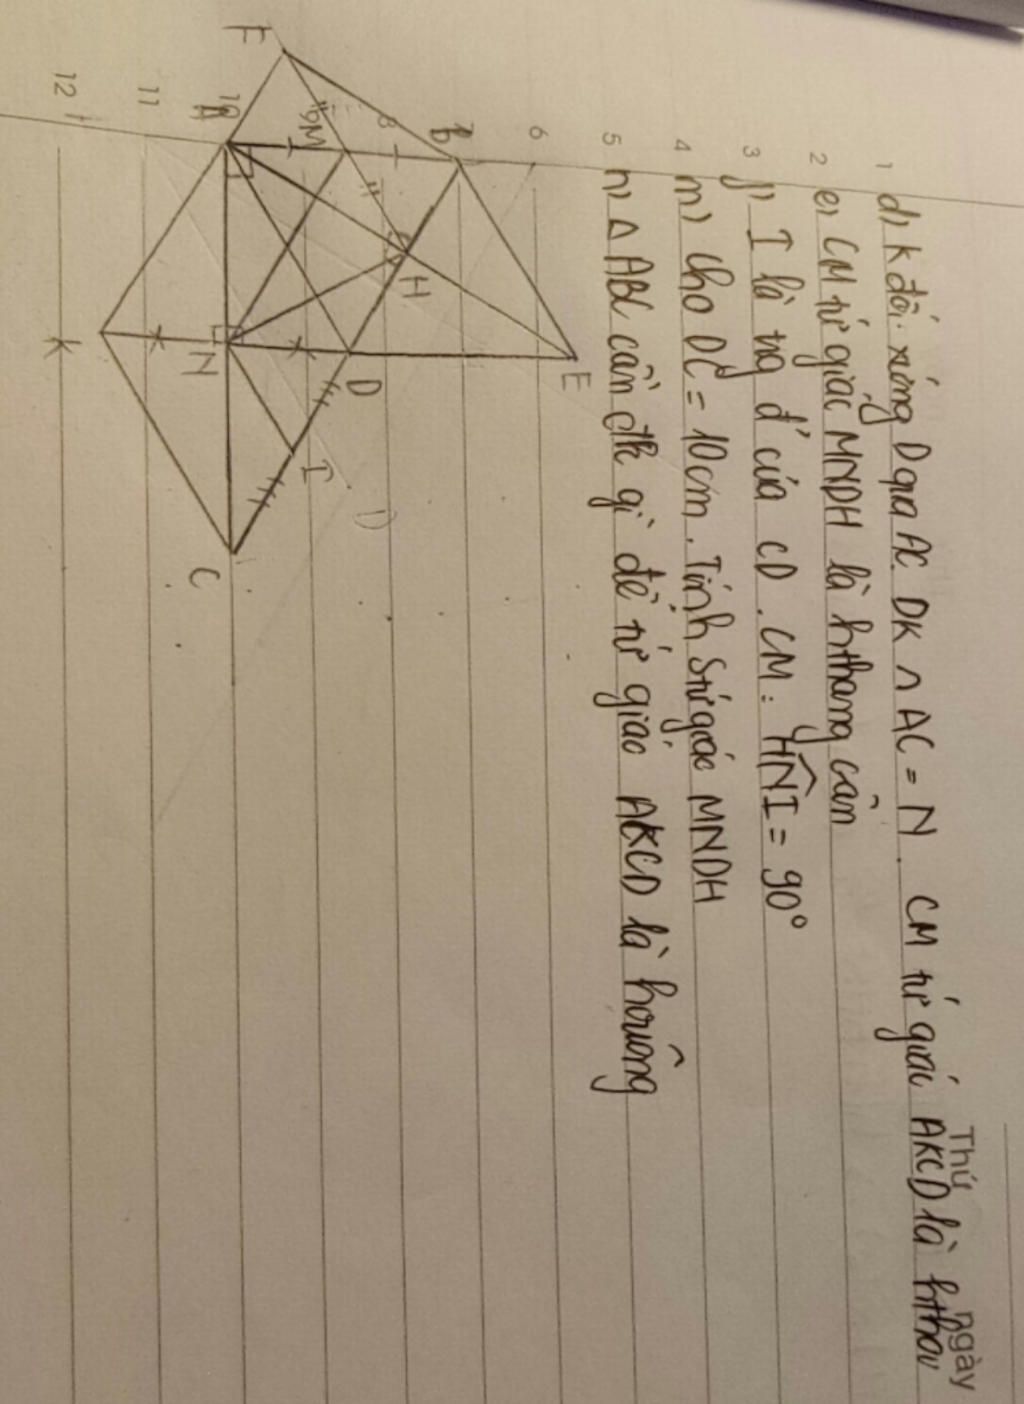 Thứ ngày
1 d) K đối xứng D qua AC. DK ∩ AC = N. CM tứ giác AKCD là hthoi
2 e) CM tứ giác MNDH là hthang cân
3 I là trg đ' của CD. CM: HNI = 90°
4 m) Cho DC = 10cm. Tính S tứ giác MNDH
5 n) Δ ABC cần đk gì để tứ giác AKCD là hvuông
6
7 B
8
9 M
10 A
11
12
F
H
E
D
I
D
N
K
C